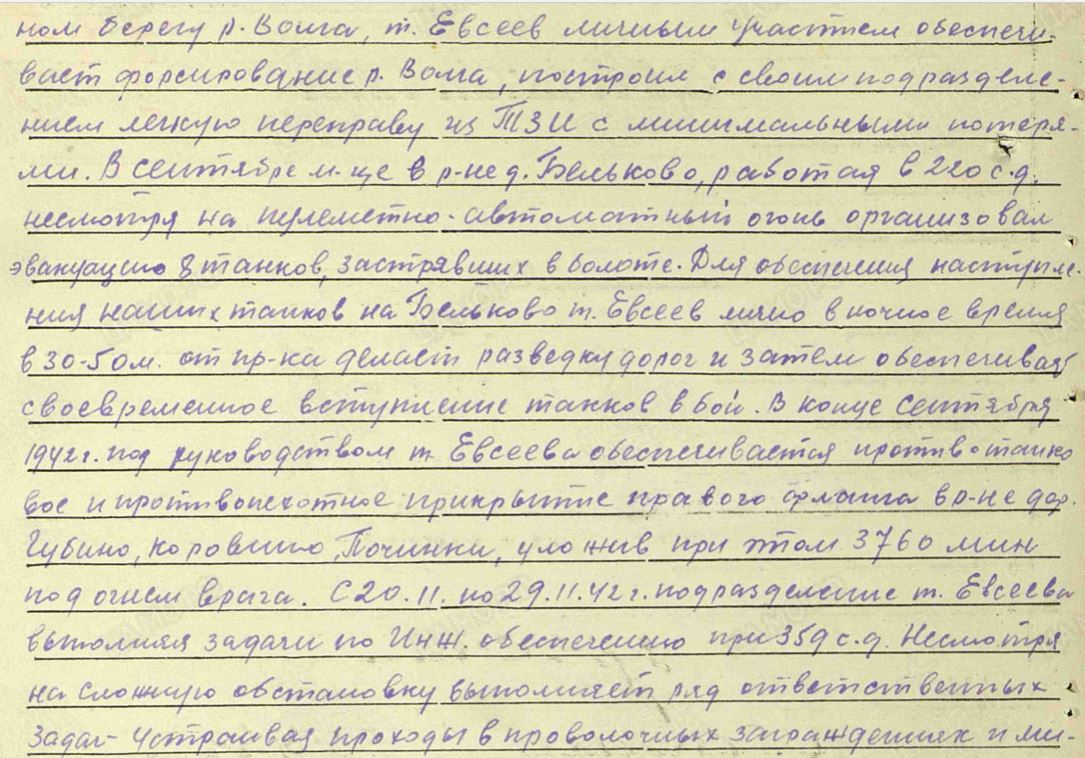 ном берегу р. Волга, т. Евсеев личным участием обеспечи-
вает форсирование р. Волга, построил с своим подразделе-
нием легкую переправу из ТЗИ с минимальными потеря-
ми. В сентябре м-це в р-не д. Бельково, работая в 220 с.д.
несмотря на пулеметно-автоматный огонь организовал
эвакуацию 8 танков, застрявших в болоте. Для обеспечения наступле-
ния наших танков на Бельково т. Евсеев лично в ночное время
в 30-50м. от пр-ка делает разведку дорог и затем обеспечивает
своевременное вступление танков в бой. В конце сентября
1942г. под руководством т. Евсеева обеспечивается противотанко
вое и противопехотное прикрытие правого фланга в р-не дер.
Губино, Коровино, Починки, уложив при этом 3760 мин
под огнем врага. С 20.11. по 29.11.42г. подразделение т. Евсеева
выполняя задачи по Инж. обеспечению при 359 с.д. Несмотря
на сложную обстановку выполняет ряд ответственных
задач - устраивая проходы в проволочных заграждениях и ми-